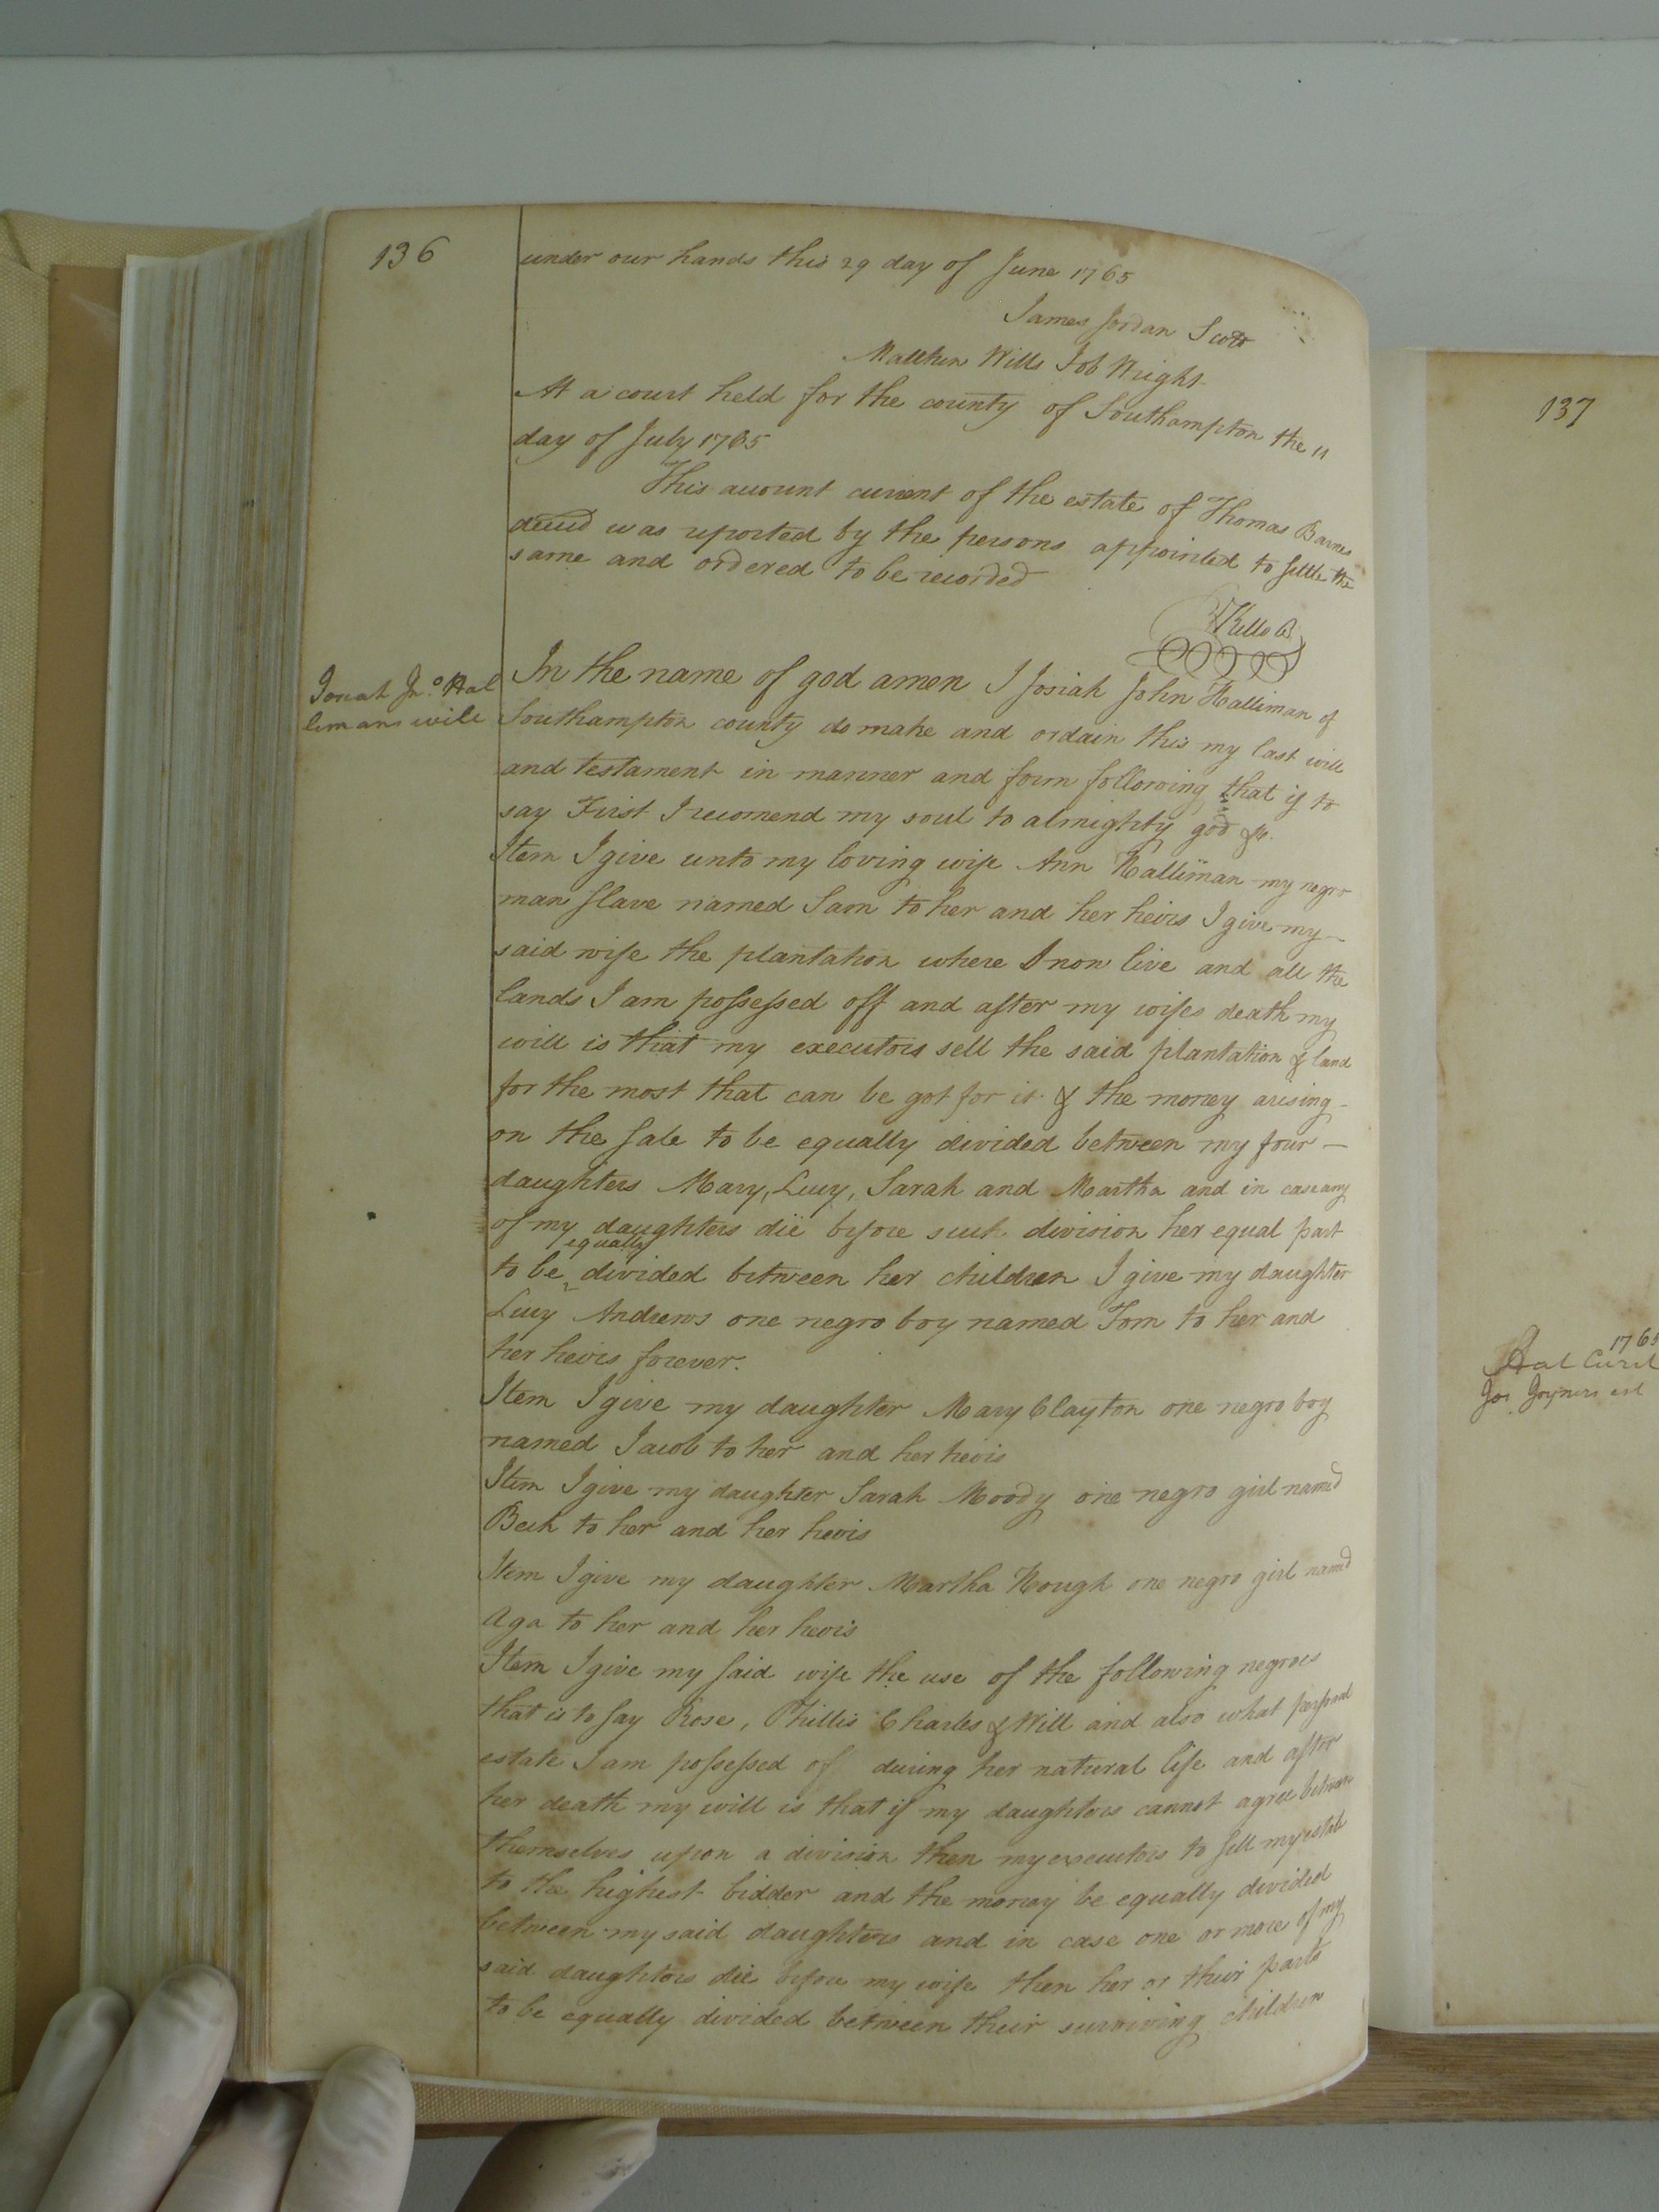 136
under our hands this 29 day of June 1765
James Jordan Scott
Matthew Wills Job Wright
At a court held for the county of Southampton the 11
day of July 1765
This account current of the estate of Thomas Barnes
deced was reported by the persons appointed to settle the
same and ordered to be recorded
Kello
Josiah Jno. Hal
limans will
In the name of god amen I Josiah John Halliman of
Southampton county do make and ordain this my last will
and testament in manner and form following that is to
say First I recomend my soul to almighty god &c.
Item I give unto my loving wife Ann Halliman my negro
man slave named Sam to her and her heirs I give my
said wife the plantation where I now live and all the
lands I am possessed off and after my wifes death my
will is that my executors sell the said plantation & land
for the most that can be got for it & the money arising
on the sale to be equally divided between my four
daughters Mary, Lucy, Sarah and Martha and in case any
of my daughters die before such division her equal part
to be equally divided between her children I give my daughter
Lucy Andrews one negro boy named Tom to her and
her heirs forever.
Item I give my daughter Mary Clayton one negro boy
named Jacob to her and her heirs
Item I give my daughter Sarah Moody one negro girl named
Beck to her and her heirs
Item I give my daughter Martha Hough one negro girl named
Aga to her and her heirs
Item I give my said wife the use of the following negroes
that is to say Rose, Phillis Charles & Will and also what personal
estate I am possessed of during her natural life and after
her death my will is that if my daughters cannot agree between
themselves upon a division then my executors to sell my estate
to the highest bidder and the money be equally divided
between my said daughters and in case one or more of my
said daughters die before my wife then her or their parts
to be equally divided between their surviving children
137
1765
Jos Joyners est